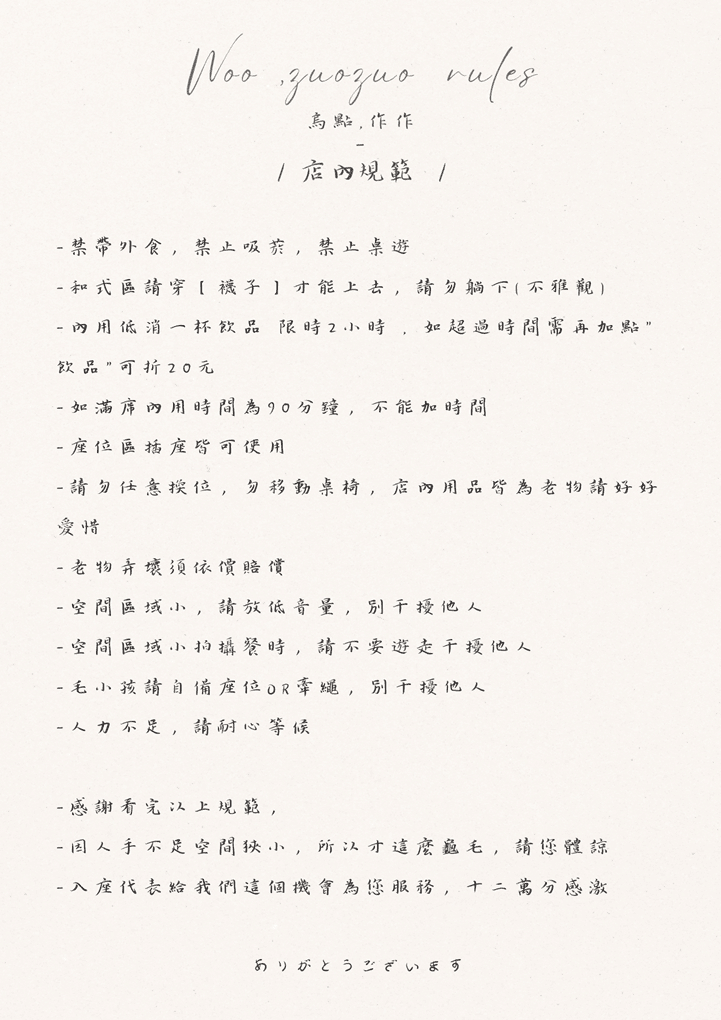 Woo ,zuozuo rules
烏點,作作
-
/ 店內規範 /
-禁帶外食, 禁止吸菸, 禁止桌遊
-和式區請穿[襪子]才能上去, 請勿躺下(不雅觀)
-內用低消一杯飲品 限時2小時 , 如超過時間需再加點"
飲品"可折20元
-如滿席內用時間為90分鐘, 不能加時間
-座位區插座皆可使用
-請勿任意換位, 勿移動桌椅, 店內用品皆為老物請好好
愛惜
-老物弄壞須依價賠償
-空間區域小, 請放低音量, 別干擾他人
-空間區域小拍攝餐時, 請不要遊走干擾他人
-毛小孩請自備座位OR牽繩, 別干擾他人
-人力不足, 請耐心等候
-感謝看完以上規範,
-因人手不足空間狹小, 所以才這麼龜毛, 請您體諒
-入座代表給我們這個機會為您服務, 十二萬分感激
ありがとうございます